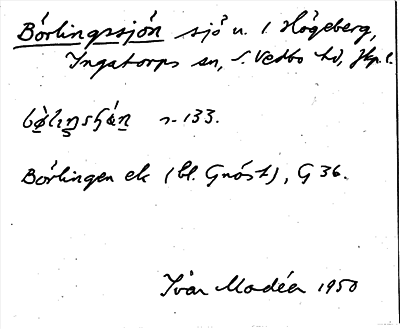 Börlingssjön sjö u. l. Högeberg,
Ingatorps sn, S. Vedbo hd, Jkp. l.
s. 133.
Börlingen ek (bl. Gnöst), G 36.
Ivar Modéer 1950